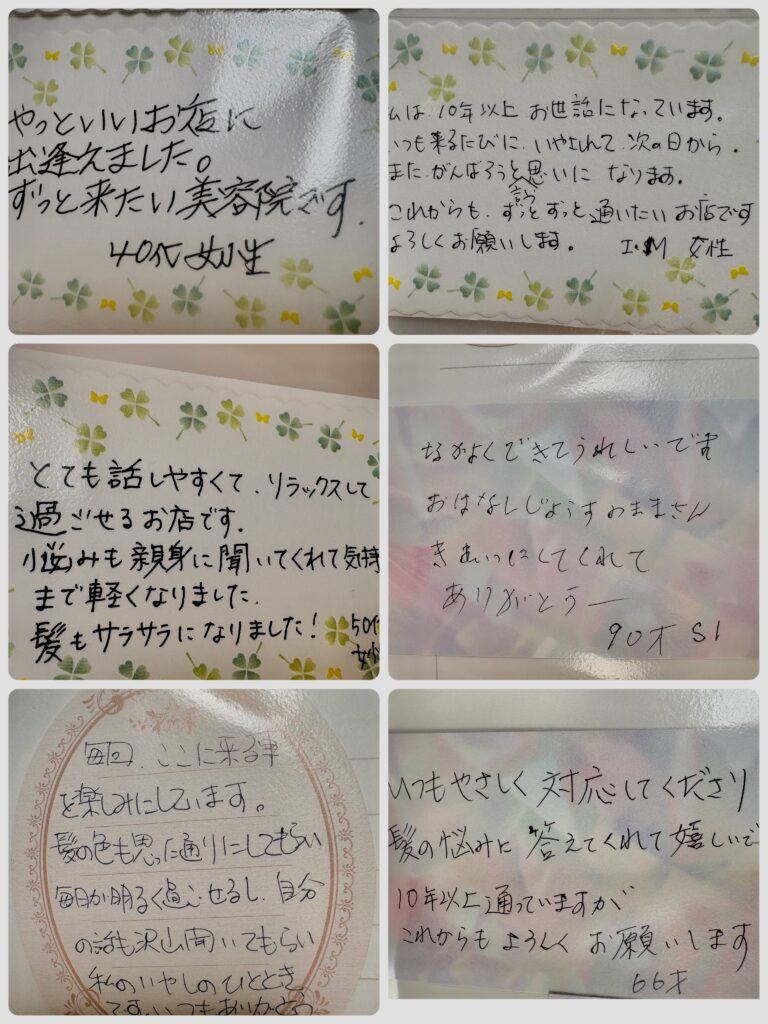 やっといいお店に
出逢えました。
ずっと来たい美容院です.
40代 女性
私は 10年以上 お世話になっています。
いつも来るたびに、いやされて、次の日から.
また がんばろうと思いに なります。
これからも、ずっとずっと通いたい お店です
よろしくお願いします。 I・M 女性
とても話しやすくて、リラックスして
過ごせるお店です.
小悩みも親身に聞いてくれて気持
まで軽くなりました.
髪もサラサラになりました! 50代
女性
なかよくできてうれしいです
おはなしじょうずのままさん
してくれて
ありがとうー
90才 SI
毎回、ここに来る事
を楽しみにしています。
髪の色も思った通りにしてもらい
毎日が明るく過ごせるし、自分
の話も沢山聞いてもらい
私のいやしのひととき
です。いつもありがとう
いつもやさしく対応してくださり
髪の悩みに 答えてくれて嬉しいで
10年以上通っていますが
これからも よろしく お願いします
66才